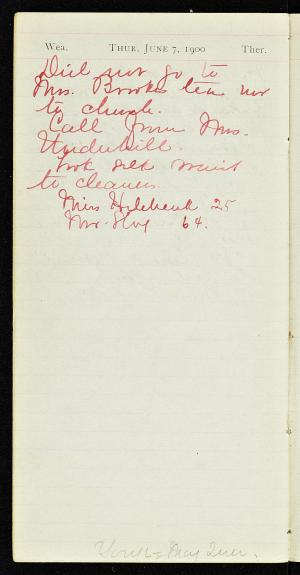 Wea. THUR. JUNE 7, 1900 Ther.
Did not go to
Mrs. Brooks tea nor
to church.
Call from Mrs.
Underhill.
Took silk waist
to cleaners.
Miss 25
64.